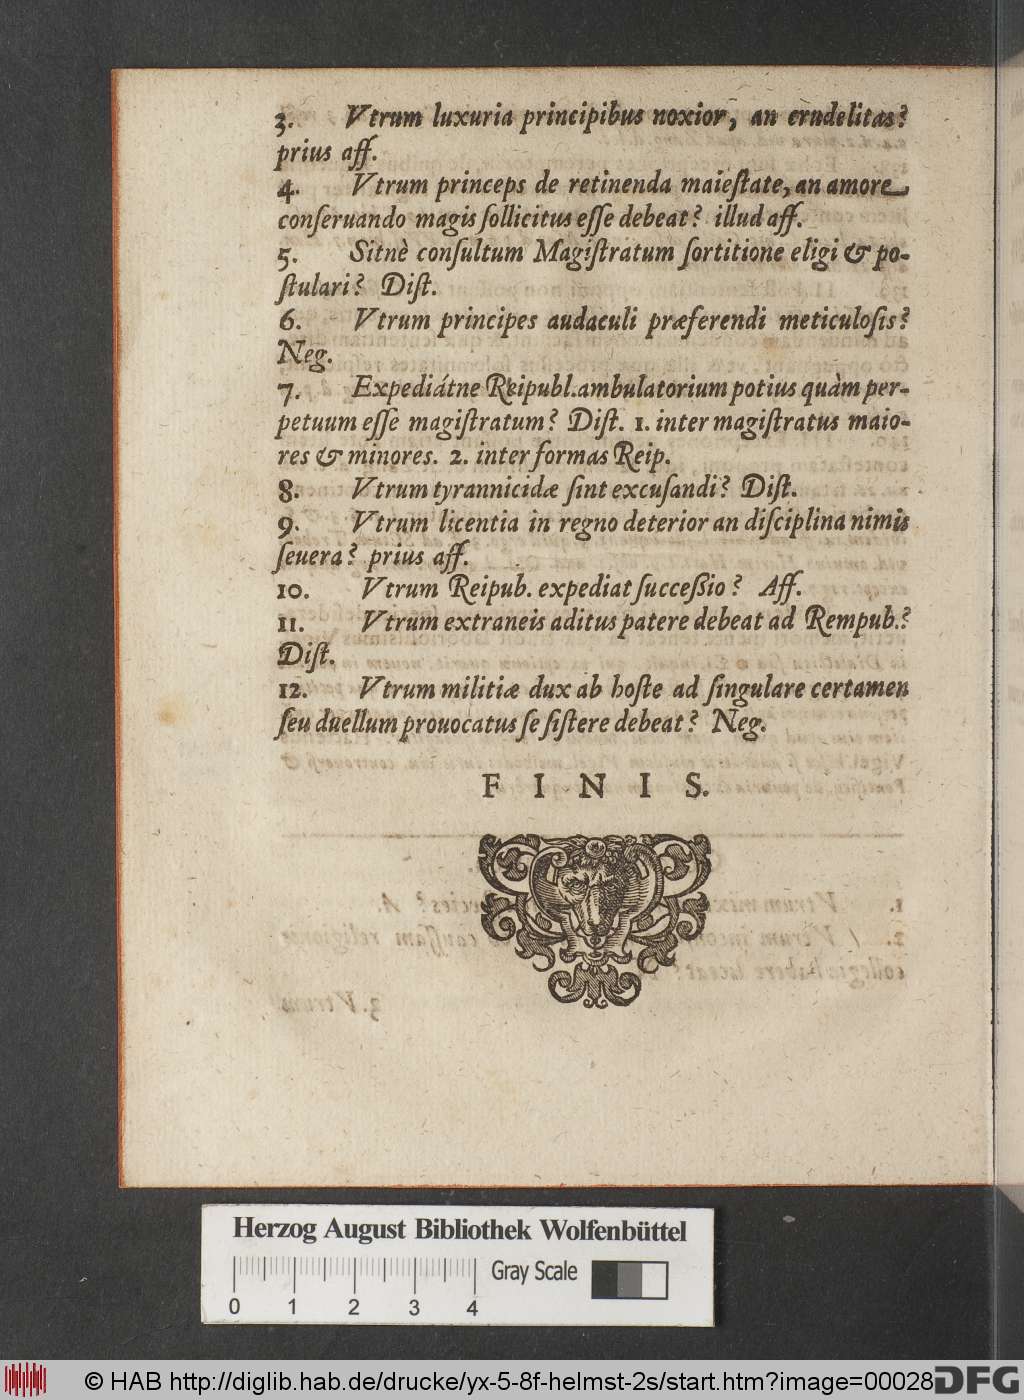 3. Vtrum luxuria principibus noxior, an crudelitas?
prius aff.
4. Vtrum princeps de retinenda maieſtate, an amore
conſeruando magis ſollicitus eſſe debeat? illud aff.
5. Sitnè conſultum Magiſtratum ſortitione eligi & po-
ſtulari? Diſt.
6. Vtrum principes audaculi præferendi meticuloſis?
Neg.
7. Expediátne Reipubl. ambulatorium potius quàm per-
petuum eſſe magiſtratum? Diſt. 1. inter magiſtratus maio-
res & minores. 2. inter formas Reip.
8. Vtrum tyrannicidæ ſint excuſandi? Diſt.
9. Vtrum licentia in regno deterior an diſciplina nimis
ſeuera? prius aff.
10. Vtrum Reipub. expediat ſucceßio? Aff.
11. Vtrum extraneis aditus patere debeat ad Rempub.?
Diſt.
12. Vtrum militiæ dux ab hoſte ad ſingulare certamen
ſeu duellum prouocatus ſe ſiſtere debeat? Neg.
FINIS.
Herzog August Bibliothek Wolfenbüttel
Gray Scale
0 1 2 3 4
© HAB http://diglib.hab.de/drucke/yx-5-8f-helmst-2s/start.htm?image=00028
DFG